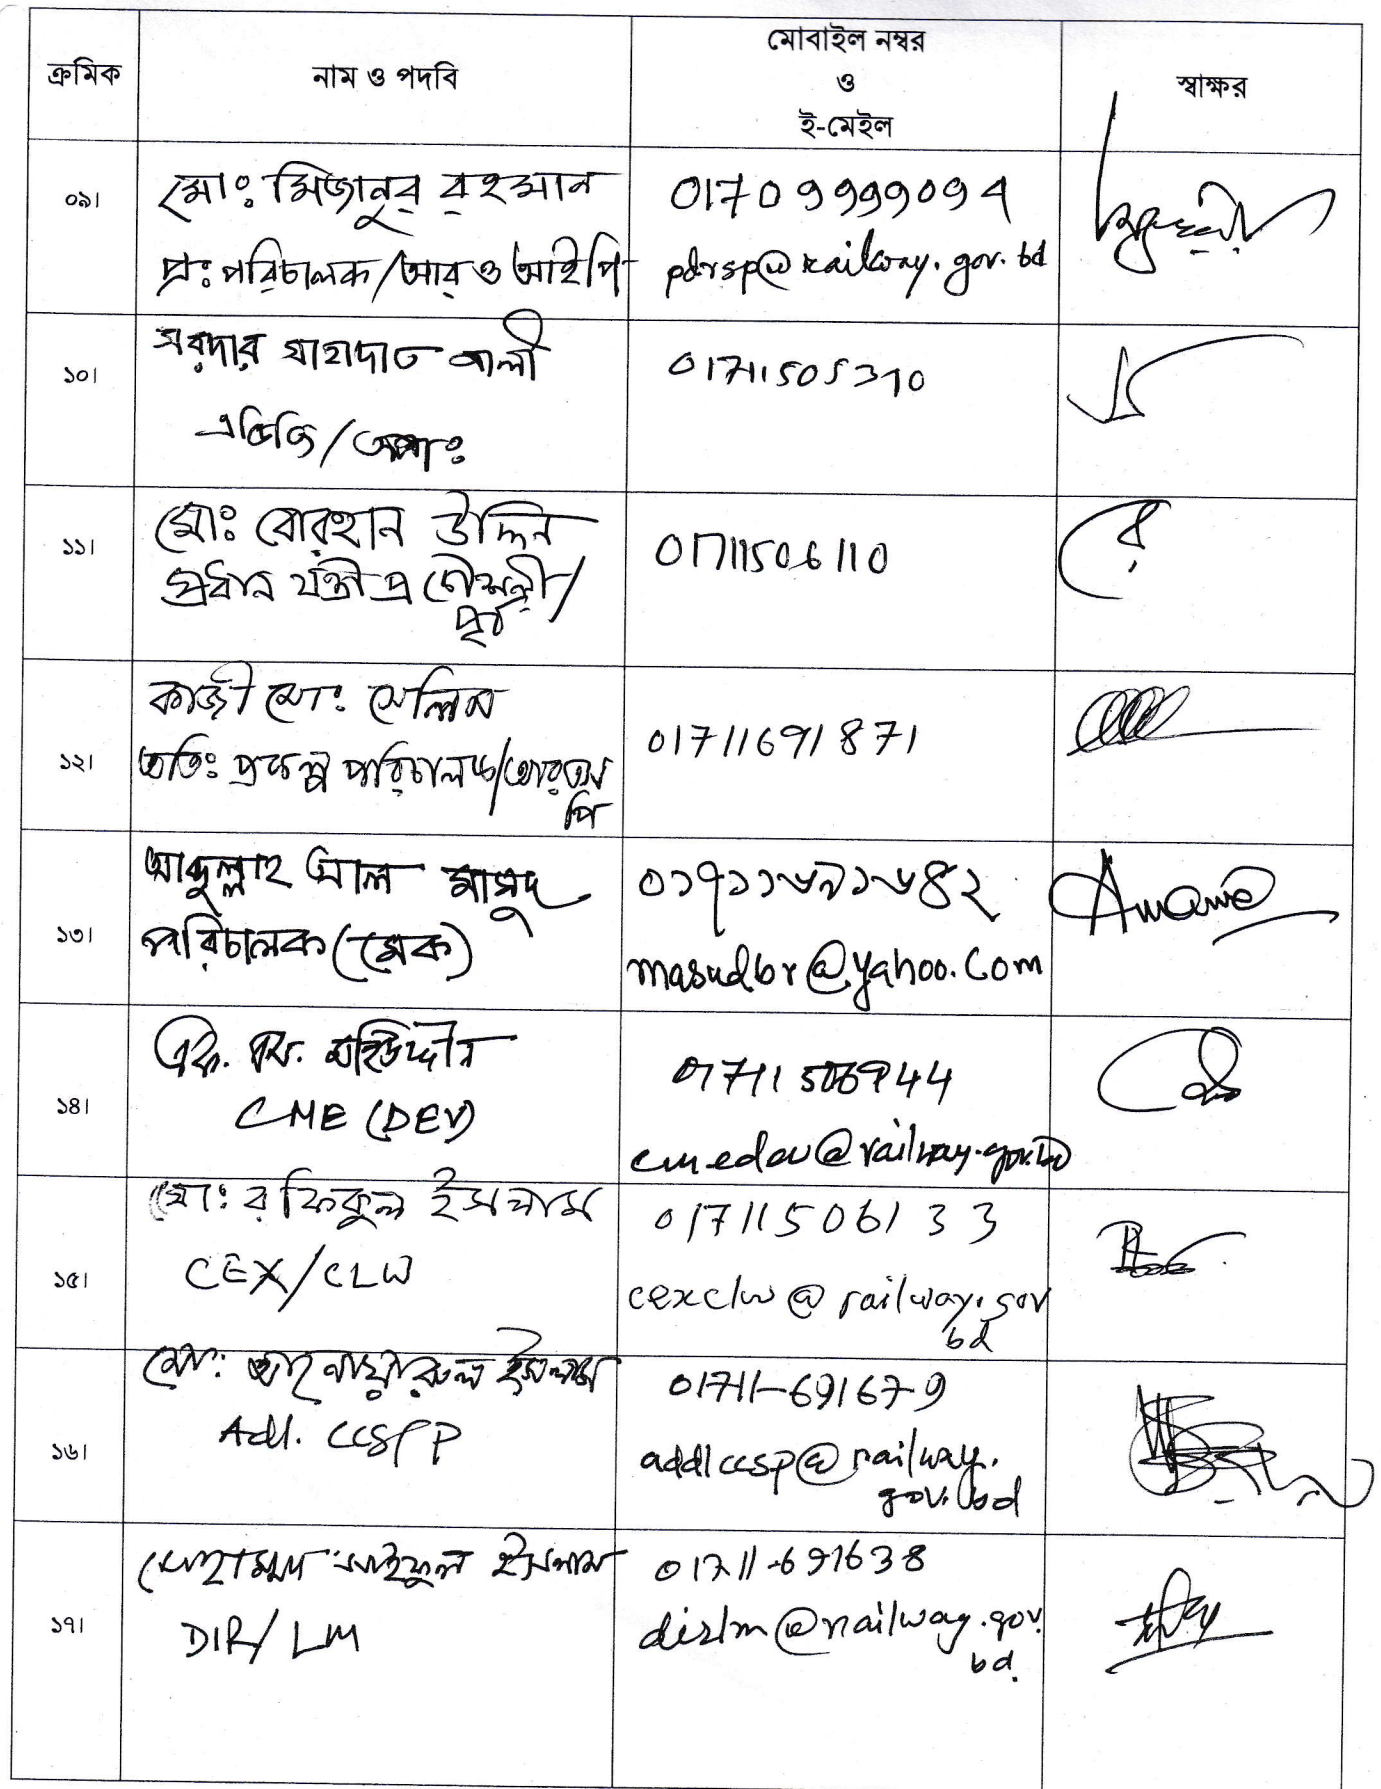 ক্রমিক
নাম ও পদবি
মোবাইল নম্বর
ও
ই-মেইল
স্বাক্ষর
০৯।
মোঃ মিজানুর রহমান
প্রঃ পরিচালক/আর ও আইপি
01709999094
pdrsp@railway.gov.bd
১০।
সরদার সাহাদাত আলী
এডিজি/অপাঃ
01711505310
১১।
মোঃ বোরহান উদ্দিন
প্রধান যন্ত্রী প্রকৌশলী/
পূর্ব
01711506110
১২।
কাজী মোঃ সেলিম
অতিঃ প্রকল্প পরিচালক/আরএস
পি
01711691871
১৩।
আব্দুল্লাহ আল মাসুদ
পরিচালক (মেক)
০১৭১১৬৯১৬৪২
masudbr@yahoo.com
১৪।
এফ. এম. মহিউদ্দীন
CME (DEV)
cmedev@railway.gov.bd
১৫।
মো: রফিকুল ইসলাম
CEX/CLW
01711506133
cexclw@railway.gov
bd
১৬।
মো: আনোয়ারুল ইসলাম
Addl. CCS/P
01711-691679
addlccsp@railway.
gov.bd
১৭।
মোহাম্মদ সাইফুল ইসলাম
DIR/LM
01711-691638
dirlm@railway.gov.
bd.